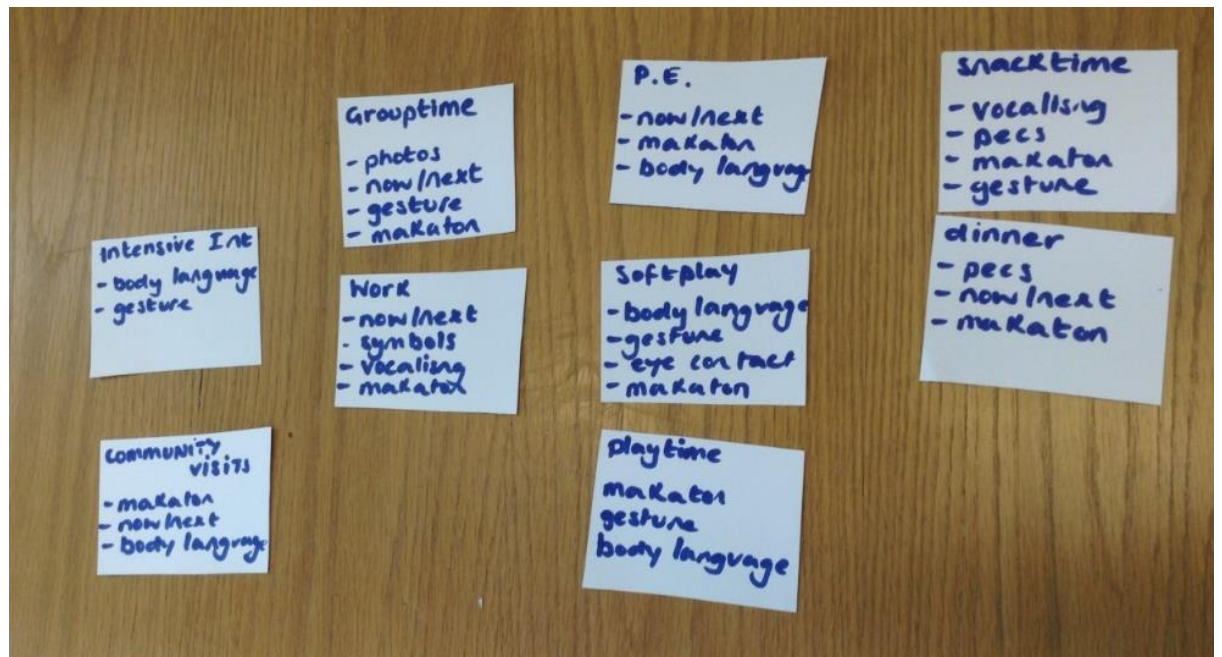 Intensive Int
- body language
- gesture
Community
visits
- makaton
- now/next
- body language
Grouptime
- photos
- now/next
- gesture
- makaton
Work
- now/next
- symbols
- vocalisng
- makaton
P.E.
- now/next
- makaton
- body languag
Softplay
- body language
- gesture
- eye contact
- makaton
Playtime
makaton
gesture
body language
Snacktime
- vocalisng
- pecs
- makaton
- gesture
dinner
- pecs
- now/next
- makaton